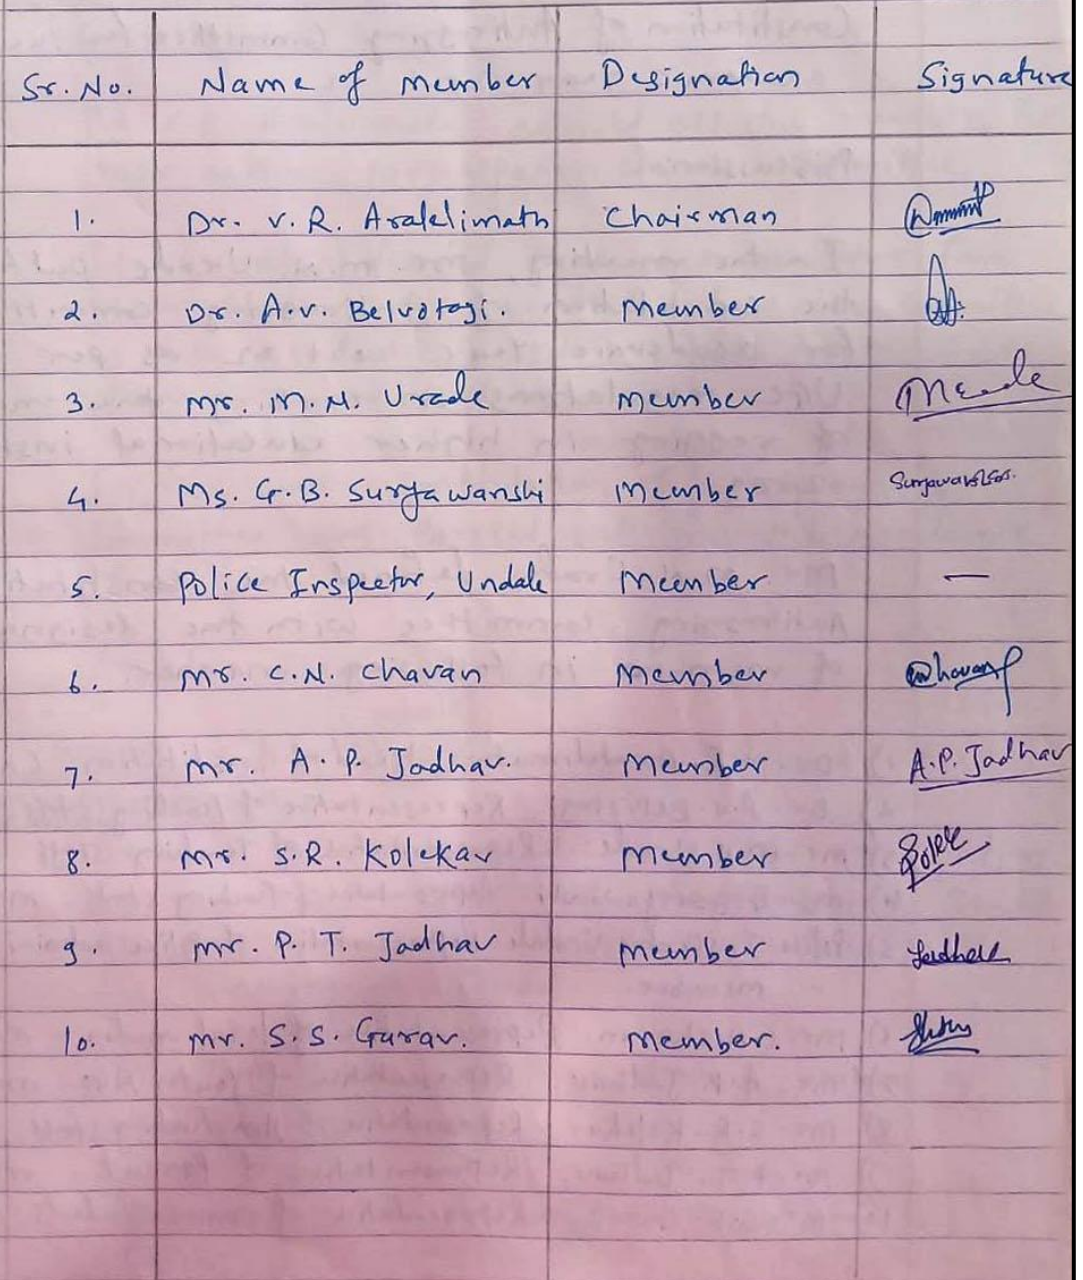 Sr. No. Name of member Designation Signature
1. Dr. V. R. Aralelimath Chairman
2. Dr. A.V. Belvotagi. Member
3. Mr. M. N. Urade Member
4. Ms. G. B. Suryawanshi Member Suryawanshi
5. Police Inspector, Undale Member —
6. Mr. C. N. Chavan Member Chavan
7. Mr. A. P. Jadhav. Member A.P. Jadhav
8. Mr. S.R. Kolekar Member
9. Mr. P. T. Jadhav Member
10. Mr. S. S. Gurav. Member.